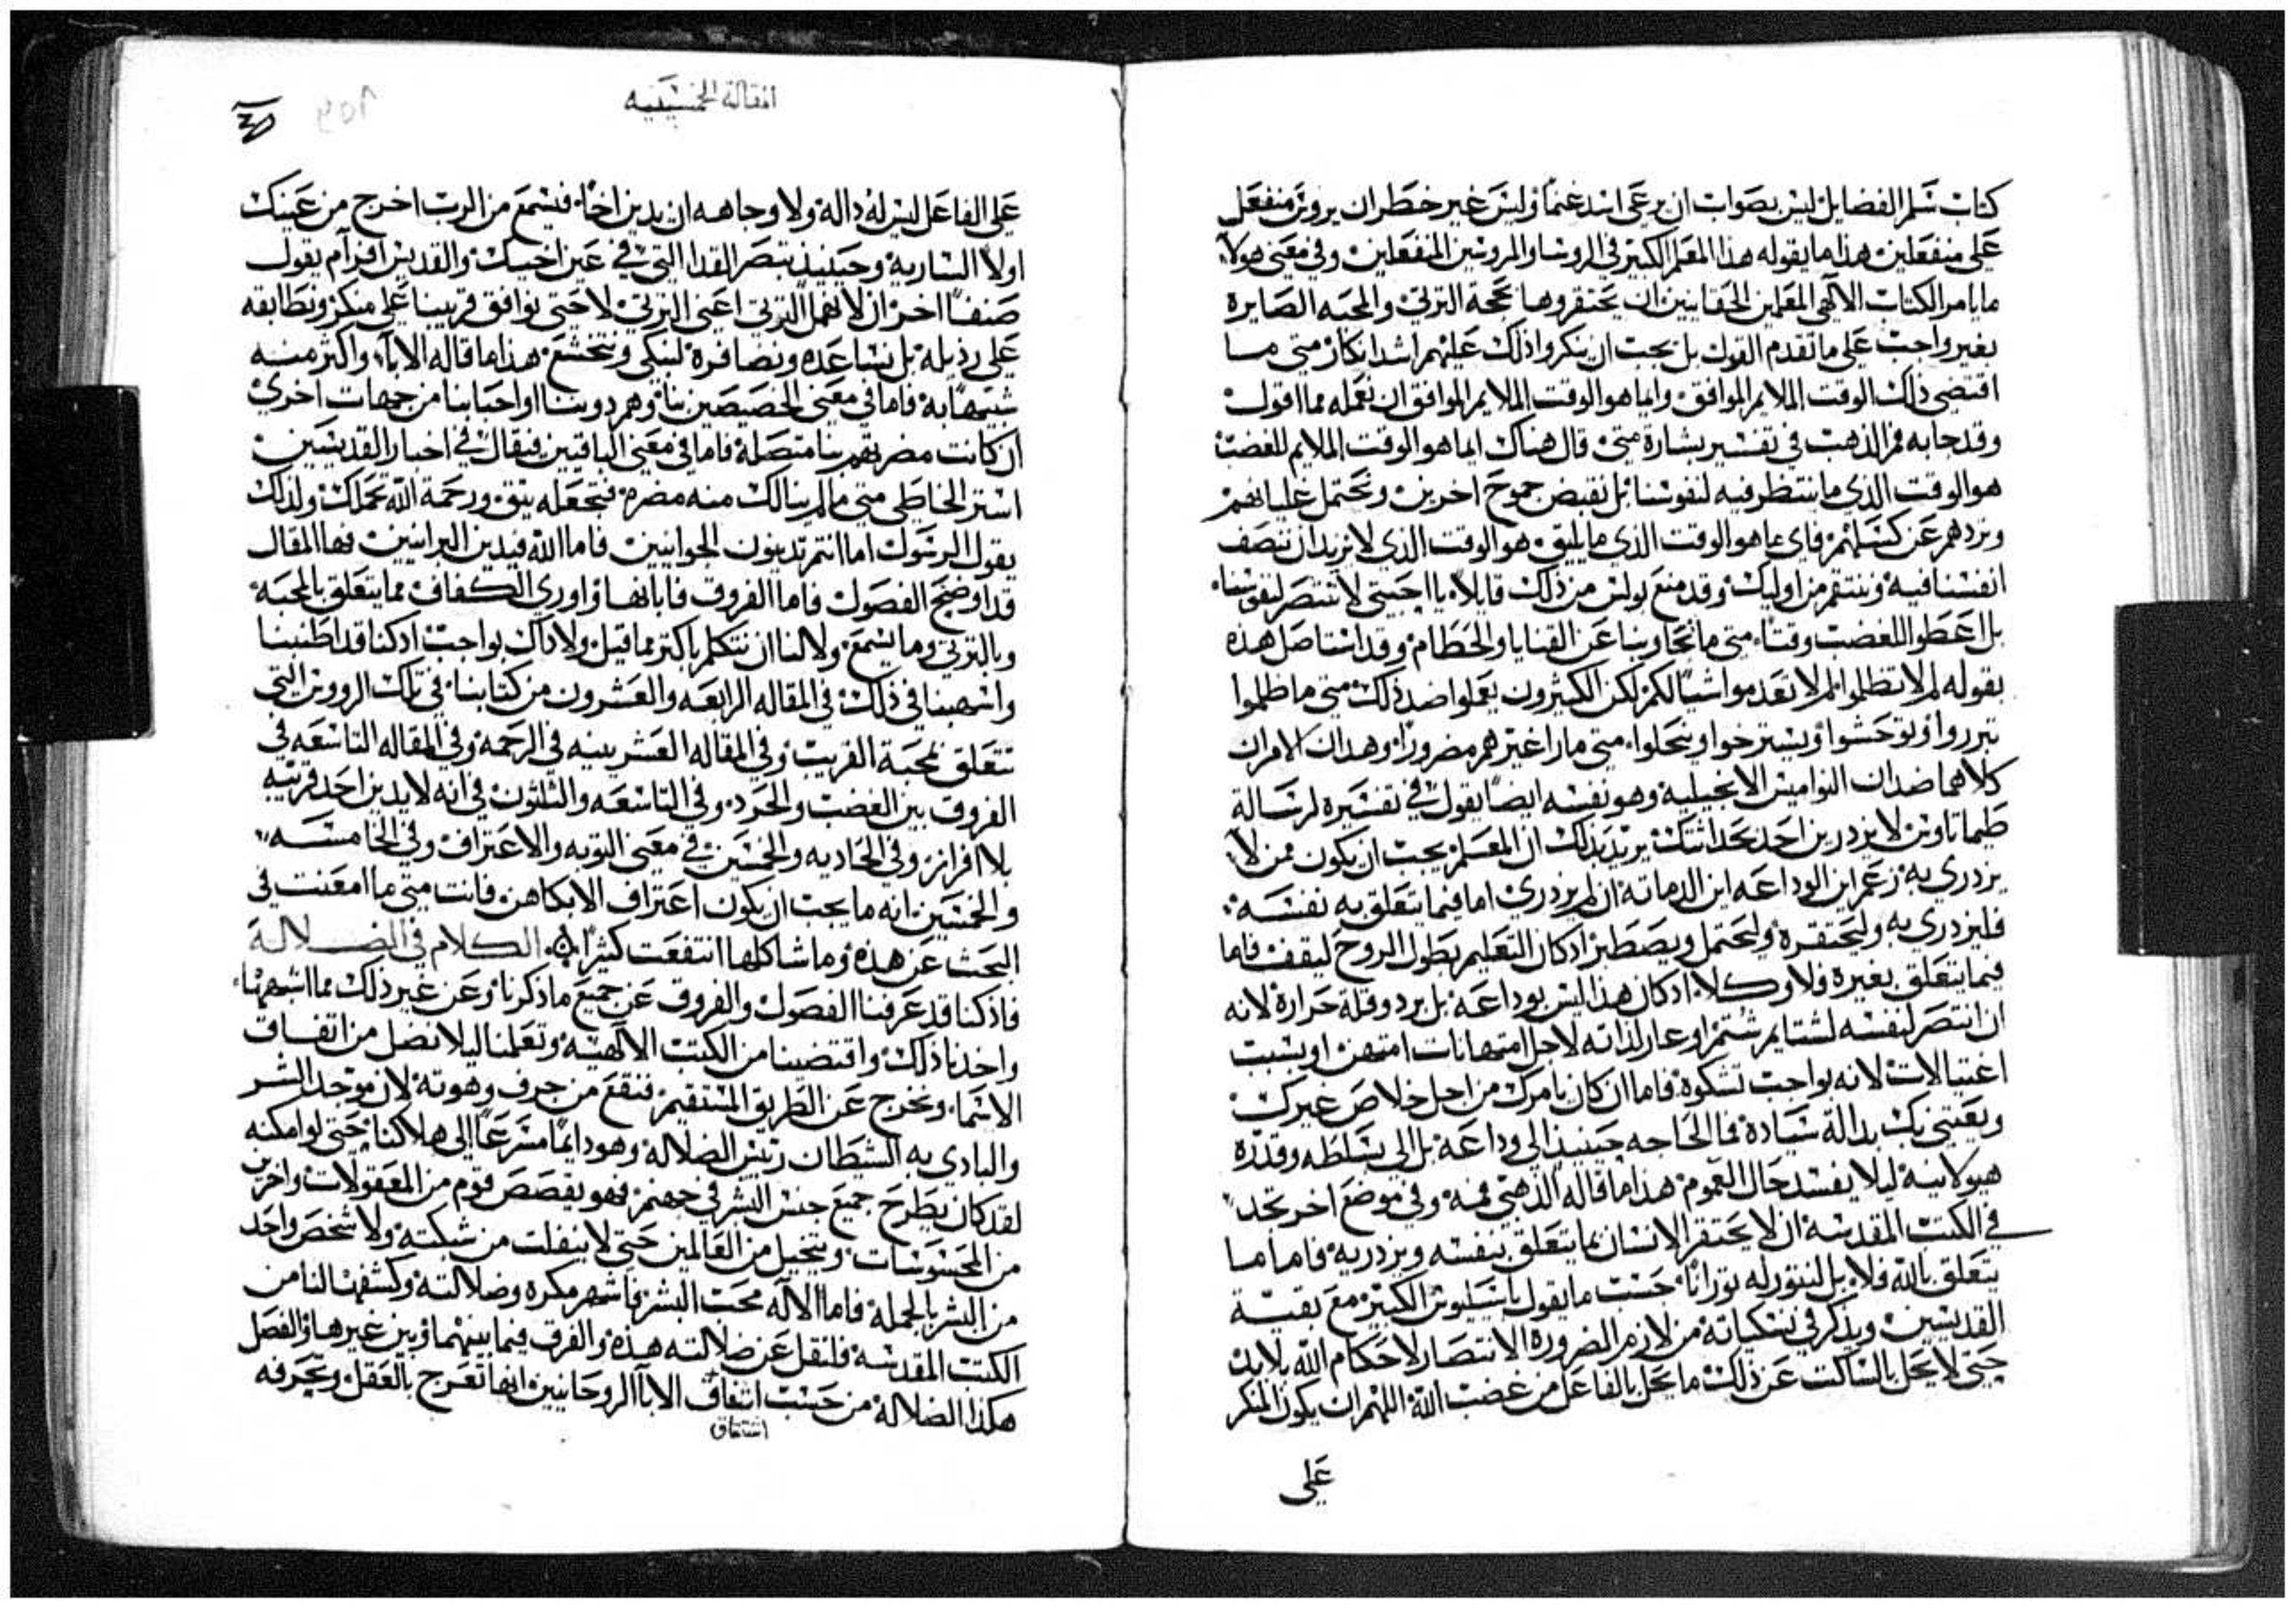 كتاب سلم الفضايل ليس بصواب ان يرعى اسد غنماً وليس غير خطر ان يروس منفعل
على منفعلين هذا ما يقوله هذا المعلم الكبير في الروسا والمروسين المنفعلين وفي معنى هولاء
ما يامر الكتاب الالهي المعلمين الحقانيين ان يحتقروها بحجة الترثي والمحبه الصايره
بغير واجب على ما تقدم القول بل يجب ان ينكروا ذلك عليهم اشد انكار متى ما
اقتضى ذلك الوقت الملايم الموافق وايما هو الوقت الملايم الموافق ان نعمله مما اقول
وقد جا به فم الذهب في تفسير بشارة متى قال هناك ايما هو الوقت الملايم للغضب
هو الوقت الذي ما ننتظر فيه لنفوسنا بل نقبض جموح اخرين ونحتمل
ونردهم عن كسلهم فاي ما هو الوقت الذي ما يليق هو الوقت الذي لا نريد ان ننصف
انفسنا فيه وننتقم من اوليك وقد منع بولس من ذلك قايلاً يا احبتي لا تنتصر لنفوسنا
بل اعطوا للغضب وقتاً متى ما تجاوبنا عن القنايا والحطام وقد استاصل هذه
بقوله لم لا تظلموا لم لا تعدموا شيا لكم لكن الكثيرون يعملوا ضد ذلك متى ما ظلموا
تبرروا وتوحشوا ويسترخوا وينحلوا متى ما راا غيرهم مضروراً وهذان الامران
كلاهما ضدان النواميس الانجيلية وهو نفسه ايضاً يقول في تفسيره لرسالة
طيماتاوس لا يزدرين احد بحداثتك يريد بذلك ان المعلم يجب ان يكون ممن لا
يزدري به زعم اين الوداعه اين الدماثه ان لم يزدري اما فيما يتعلق به نفسه
فليزدري به وليحتقره وليحتمل ويصطبر اذ كان التعليم بطول الروح ليقف فاما
فيما يتعلق بغيره فلا وكلا اذ كان هذا ليس بوداعه بل برد وقلة حراره لانه
ان انتصر لنفسه لشتايم شتم او عار لذاته لاجل امتهانات امتهن او بسبب
اغتيالات لانه بواجب تشكوه فاما ان كان يامرك من اجل خلاص غيرك
ويعتني بك بدالة سياده فما الحاجه حينيذ الى وداعه بل الى تسلطه وقدره
هيولانيه ليلا يفسد حال العموم هذا ما قاله الذهبي فمه وفي موضع اخر تجد
في الكتب المقدسه ان لا يحتقر الانسان بما يتعلق بنفسه ويزدريه فاما ما
يتعلق بالله فلا بل لنتورله ثوراناً حسب ما يقول باسيليوس الكبير مع بقية
القديسين ويذكر في نسكياته من لازم الضروره الانتصار لاحكام الله بلا بد
حتى لا يحل بالساكت عن ذلك ما يحل بالفاعل من غضب الله اللهم ان يكون المنكر
على
المقالة الخمسينيه
على الفاعل ليس له دالة ولا وجاهه ان يدين اخاً فيسمع من الرب اخرج من عينك
اولاً الساريه وحينيذ تبصر القذا التي في عين اخيك والقديس افرآم يقول
صنفاً اخر ان لا نهمل الترثي اعني الترثي لا حتى نوافق قريبنا على منكر ونطابقه
على رذيله بل نساعده ونضافره لنبكي ونتخشع هذا ما قاله الاباء واكثر منه
شبيهاً به فاما في معنى الخصيصين بنا وهم ذوونا او احبابنا من جهات اخرى
ان كانت مضرتهم بنا متصله فاما في معنى الباقيين فيقال في اخبار القديسين
استر الخاطي متى ما لم ينالك منه مضره فتجعله يثق ورحمة الله تحملك ولذلك
يقول الرسول اما انتم تدينون الجوانيين فاما الله فيدين البرانيين فها المقال
قد اوضح الفصول فاما الفروق فابانها واورى الكفاف مما يتعلق بالمحبة
وبالترثي وما يسمع ولا لنا ان نتكلم باكثر مما قيل ولا ذاك بواجب اذ كنا قد اطنبنا
واسهبنا في ذلك في المقاله الرابعه والعشرون من كتابنا في تلك الرووس التي
تتعلق بمحبة القريب وفي المقاله العشرينيه في الرحمه وفي المقاله التاسعه في
الفروق بين الغضب والحرد وفي التاسعه والثلثون في انه لا يدين احد قريبه
بلا افراز وفي الحاديه والخمسين في معنى التوبه والاعتراف وفي الخامسه
والخمسين انه ما يجب ان يكون اعتراف الا بكاهن فانت متى ما امعنت في
البحث عن هذه وما شاكلها انتفعت كثيراً الكلام في الضلالة
فاذ كنا قد عرفنا الفصول والفروق عن جميع ما ذكرنا وعن غير ذلك مما اشهرنا
واخذنا ذلك واقتضينا من الكتب الالهيه وتعلمنا ليلا نضل من اتفاق
الاسماء ونخرج عن الطريق المستقيم فنقع من جرف وهوته لان موجد الشر
والبادي به الشيطان رييس الضلاله وهو دايماً مسرعاً الى هلاكنا حتى لو امكنه
لقد كان يطرح جميع جنس البشر في جهنم فهو يقصص قوم من المعقولات واخرين
من المحسوسات ويتخيل من العالمين حتى لا ينفلت من شبكته ولا شخص واحد
من البشر بالجمله فاما الاله محب البشر فاشهر مكره وضلالته وكشفها لنا من
الكتب المقدسه فلنقل عن ضلالته هذه والفرق فيما بينهما وبين غيرها والفصل
هكذا الضلاله من حسب اتفاق الابا الروحانيين انها تعرج بالعقل وتحرفه
اشتقاق